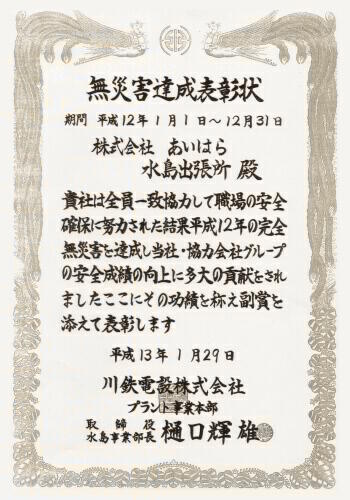 無災害達成表彰状
期間 平成12年1月1日～12月31日
株式会社 あいはら
水島出張所 殿
貴社は全員一致協力して職場の安全
確保に努力された結果平成12年の完全
無災害を達成し当社・協力会社グループ
の安全成績の向上に多大の貢献をされ
ましたここにその功績を称え副賞を
添えて表彰します
平成13年1月29日
川鉄電設株式会社
プラント事業本部
取締役
水島事業部長 樋口輝雄